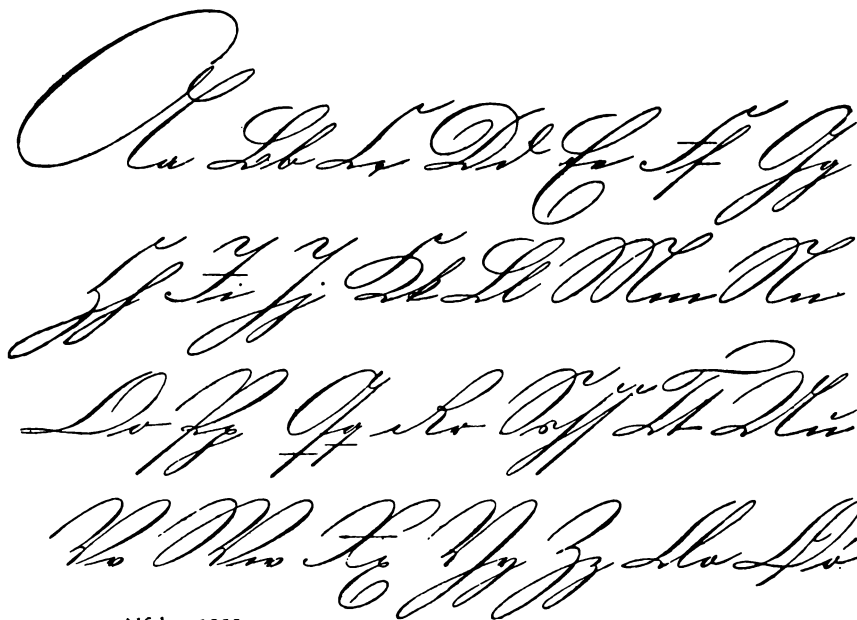 Aa Bb Cc Dd Ee Ff Gg
Hh Ii Jj Kk Ll Mm Nn
Oo Pp Qq Rr Ssſſ Tt Uu
Vv Ww Xx Yy Zz Ææ Øø